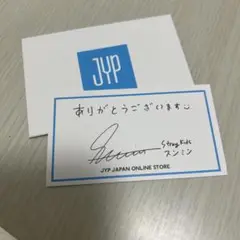 JYP
ありがとうございます
Stray Kids
スンミン
JYP JAPAN ONLINE STORE